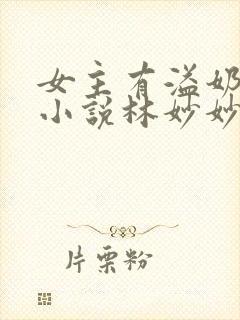 女主有溢奶
小說林妙妙
片栗粉